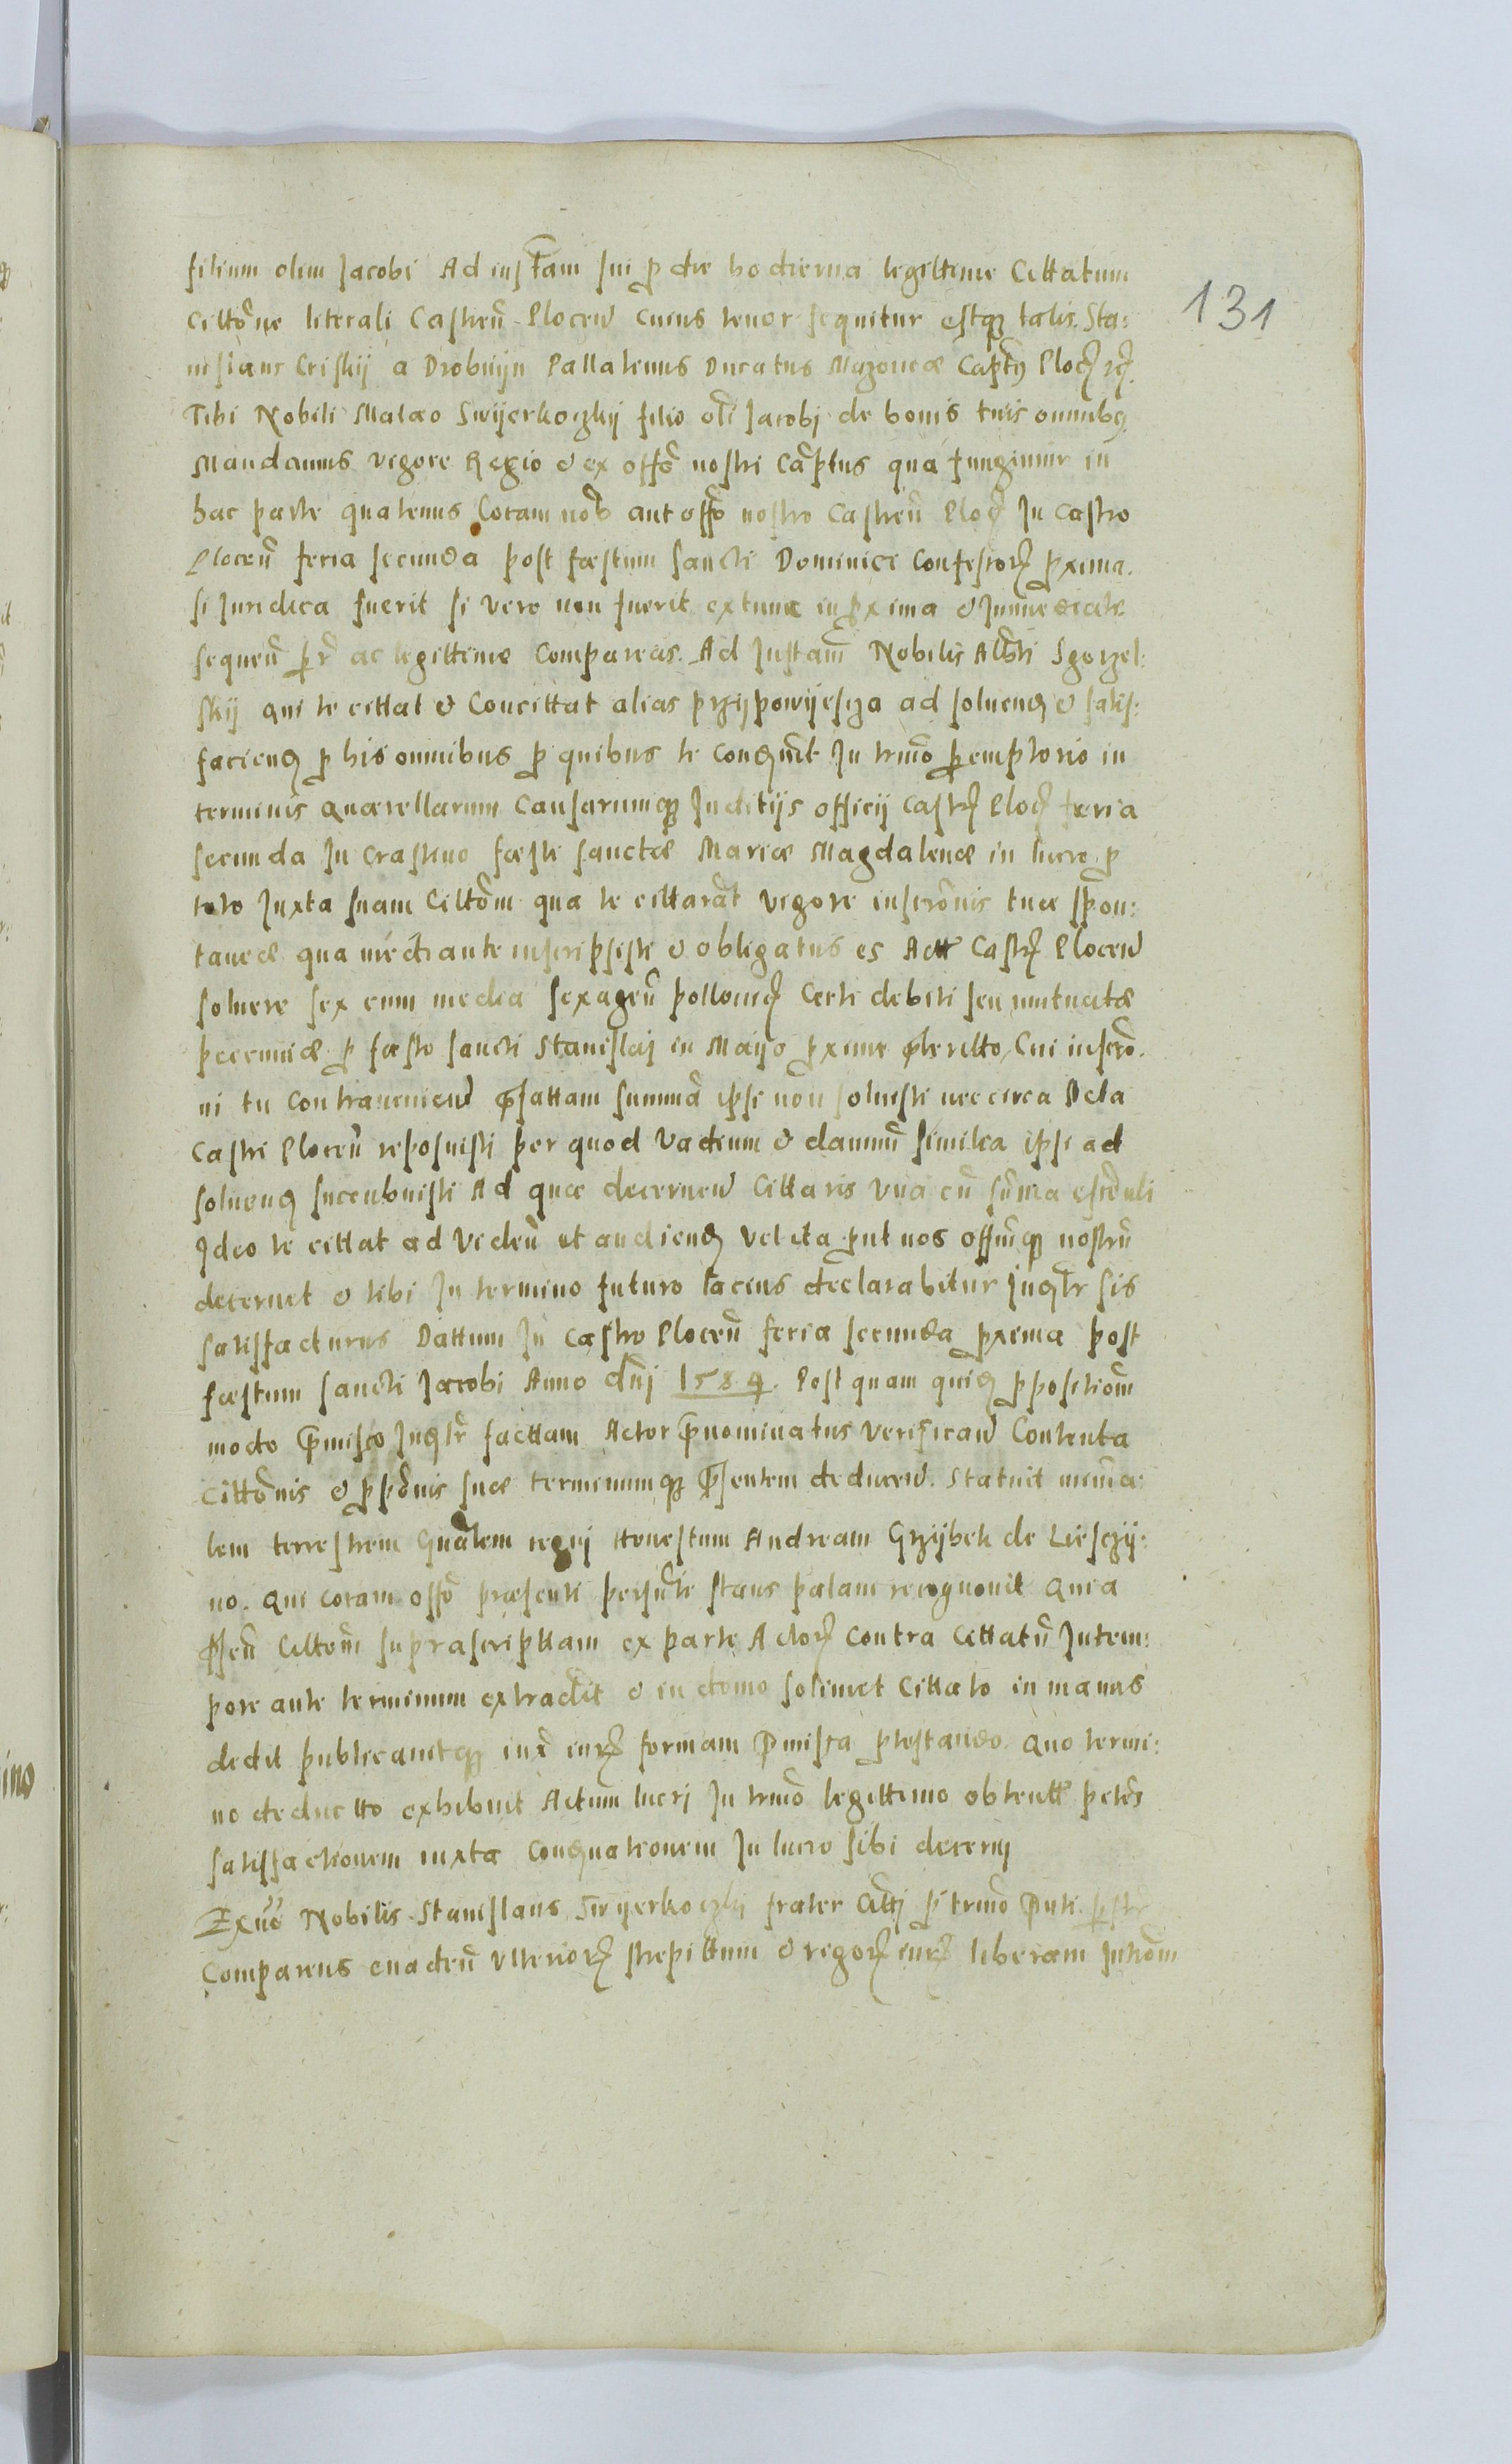 filium olim Jacobi Ad instam sui p die hodierna legittime Cittatum
131
cittõne literali Castreñ Ploceñ cuius tenor sequitur estq talis. Sta:
nislaus Criskij a Drobnijn Pallatinus Ducatus Mazouiæ Captꝰ Ploceñ
Tibi Nobili Matæo Swijerkoczkij filio oli Jacobj de bonis tuis omnibꝰ
Mandamus vigore Regio & ex offõ nostri Captus qua fungimur in
hac parte quatenus Coram nob aut offõ nostro Castreñ Ploceñ In Castro
Ploceñ feria secunda post fæstum sancti Dominici Confessoris pxima
si Juridica fuerit si vero non fuerit extunc in pxima & Jmmediate
sequeñ ac legittime Compareas. Ad Jnstam Nobilis Albti Sgorzel:
skij qui te cittat & Concittat alias przijpowijescza ad soluend & satis:
faciend p his omnibus p quibus te Condnit Jn trmõ pemptorio in
terminis quærellarum Causarumq Juditijs officij Castreñ Ploceñ feria
secunda Jn crastino fæsti sanctæ Mariæ Magdalenæ in lucro p
toto Juxta suam Cittõm qua te cittarat vigore inscrõnis tuæ spon:
taneæ qua mediante inscripsisti & obligatus es Actis Castreñ Ploceñ
soluere sex cum media sexageñ pollonic Certi debiti seu mutuatæ
pecuniæ p fæsto sancti Stanislaj in Maijo pxime pteritto, Cui inscrõ:
ni tu Contraueniend pfattam summã ipsi non soluisti nec circa Acta
Castri Ploceñ reposuisti per quod vadium & damnu similia ipsi ad
soluend succubuisti Ad quæ decerneñ Cittaris vna cũ sũma
Jdeo te cittat ad videñ et audiend vel ita put nos offmq nostrũ
decernet & tibi Jn termino futuro lacius declarabitur Judtr sis
satisfacturus Dattum Jn Castro Ploceñ feria secunda pxima post
fæstum sancti Jacobi Anno dnj 1584. Post quam quid ppositiõm
modo pmisso Judtr facttam Actor pnominatus verificañ Contenta
Cittõnis & ppõnis suæ terminumq psentem deduceñ. Statuit minra:
lem terrestrem Gnalem regnj Honestum Andream Grzijbek de Liesczij:
no. Qui coram offõ præsenti psnlr stans palam recognouit Quia
pseñ Cittõm suprascripttam ex parte Actoris Contra Cittatũ Jn tem:
pore ante terminum extradit & in domo solimet Cittato in manus
dedit publicauitq iux iuris formam pmissa ptestando. Quo termi:
no deductto exhibuit Actum lucrj Jn trmõ legittimo obtentũ petens
satisfactionem iuxta Condnationem Jn lucro sibi decernj
Exuõ Nobilis Stanislaus Swijerkoczkij frater Cittj p trmõ pnti
Comparens euadeñ vlterioris strepittum & rigoris iuris liberam Jntrõm